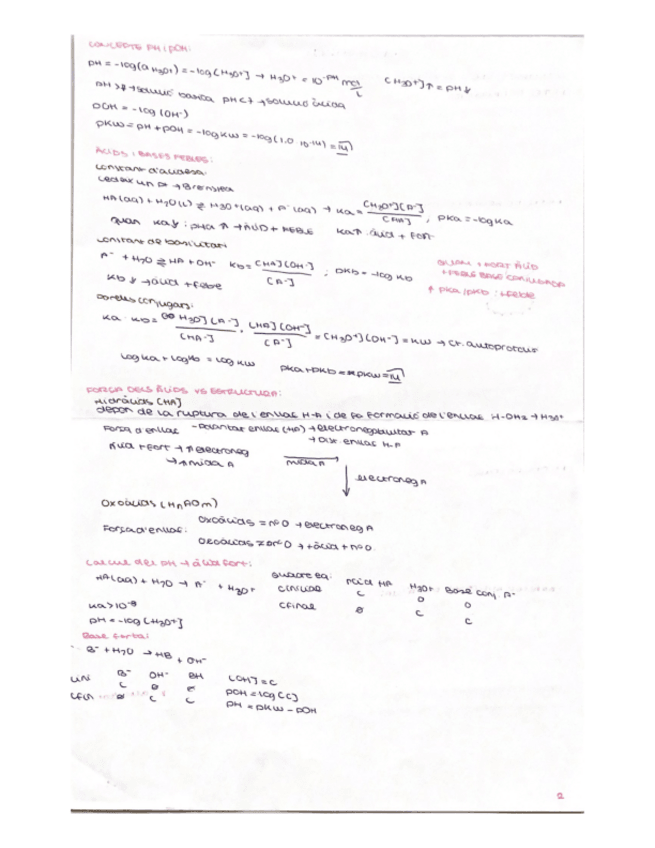 CONCEPTE PH i POH:
pH = -log(a H3O+) = -log[H3O+] → H3O+ = 10^-pH mol/L   [H3O+]↑ = pH↓
pH >7 → solució bàsica pH<7 → solució àcida
pOH = -log (OH-)
pKw = pH + pOH = -log Kw = -log(1.0 10-14) = 14
ÀCIDS i BASES FEBLES:
constant d'acidesa:
HA(aq) + H2O(l) ⇌ H3O+(aq) + A-(aq) → Ka = [H3O+][A-] / [HA], pKa = -log Ka
quan Ka↓: pKa ↑ → ÀCID + FEBLE   Ka↑: àcid + fort
constant de basicitat:
A- + H2O ⇌ HA + OH-   Kb = [HA][OH-] / [A-] ; pKb = -log Kb
Kb ↓ → àcid + feble
+ FORT ÀCID
+ FEBLE BASE CONJUGADA
↑ pKa/pKb : + feble
parelles conjugades:
Ka · Kb = [H3O][A-] / [HA-] · [HA][OH-] / [A-] = [H3O+][OH-] = Kw → ct. autopròtolisi
log Ka + log Kb = log Kw   pKa + pKb = pKw = 14
FORÇA DELS ÀCIDS VS ESTRUCTURA:
Hidràcids (HA)
depèn de la ruptura de l'enllaç H-A i de la formació de l'enllaç H-OH2 → H3O+
Força d'enllaç - Polaritat enllaç (HA) → electronegativitat A
→ Dist. enllaç H-A
Àcid + fort → ↑ electroneg
→ ↑ mida A
mida A
electroneg A
Oxoàcids (HnAOm)
Força d'enllaç: Oxoàcids = nº O → electroneg A
Oxoàcids ≠ nº O → + àcid + nº O
Càlcul del pH → àcid fort:
HA(aq) + H2O → A- + H3O+   Quadre eq:   Àcid HA   H3O+   Base conj A-
C inicial   C   0   0
Ka > 10   C final   0   C   C
pH = -log [H3O+]
Base forta:
B- + H2O → HB + OH-
B-   OH-   BH   [OH] = C
C   0   0   pOH = log [C]
0   C   C   pH = pKw - pOH
2